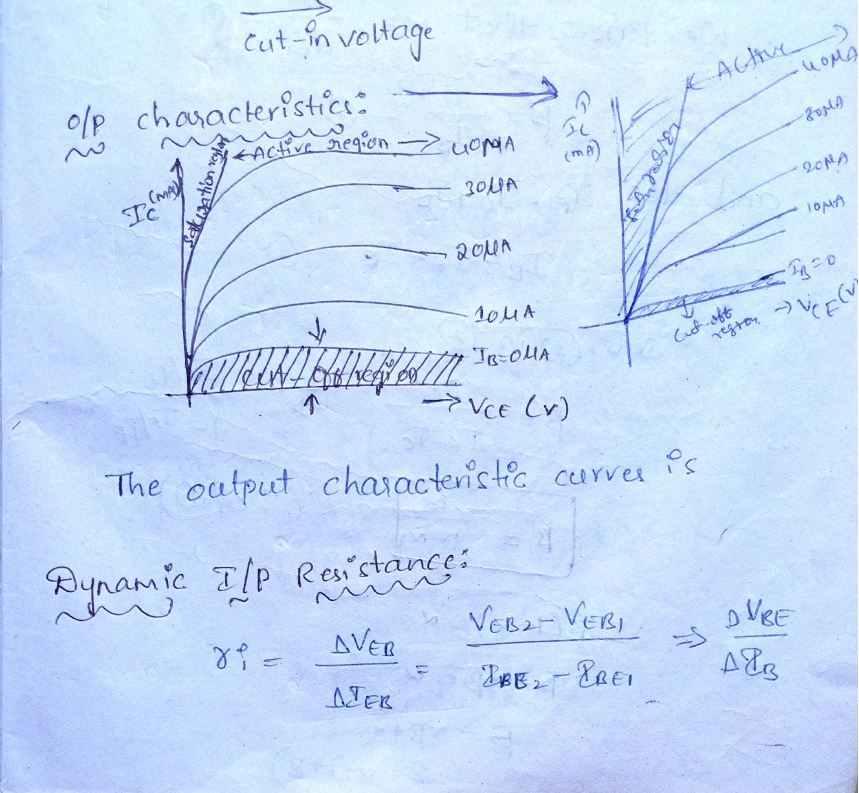 cut-in voltage
o/p characteristics:
Ic (mA)
Saturation region
← Active region →
40MA
30MA
20MA
10MA
IB=0MA
cut-off region
→ VCE (v)
Ic
(mA)
Saturation
← Active →
40MA
30MA
20MA
10MA
IB=0
cut-off
region
→ VCE (v)
The output characteristic curves is
Dynamic I/p Resistance:
ri = ΔVEB / ΔIEB = VEB2 - VEB1 / IBE2 - IBE1 ⇒ ΔVBE / ΔIB